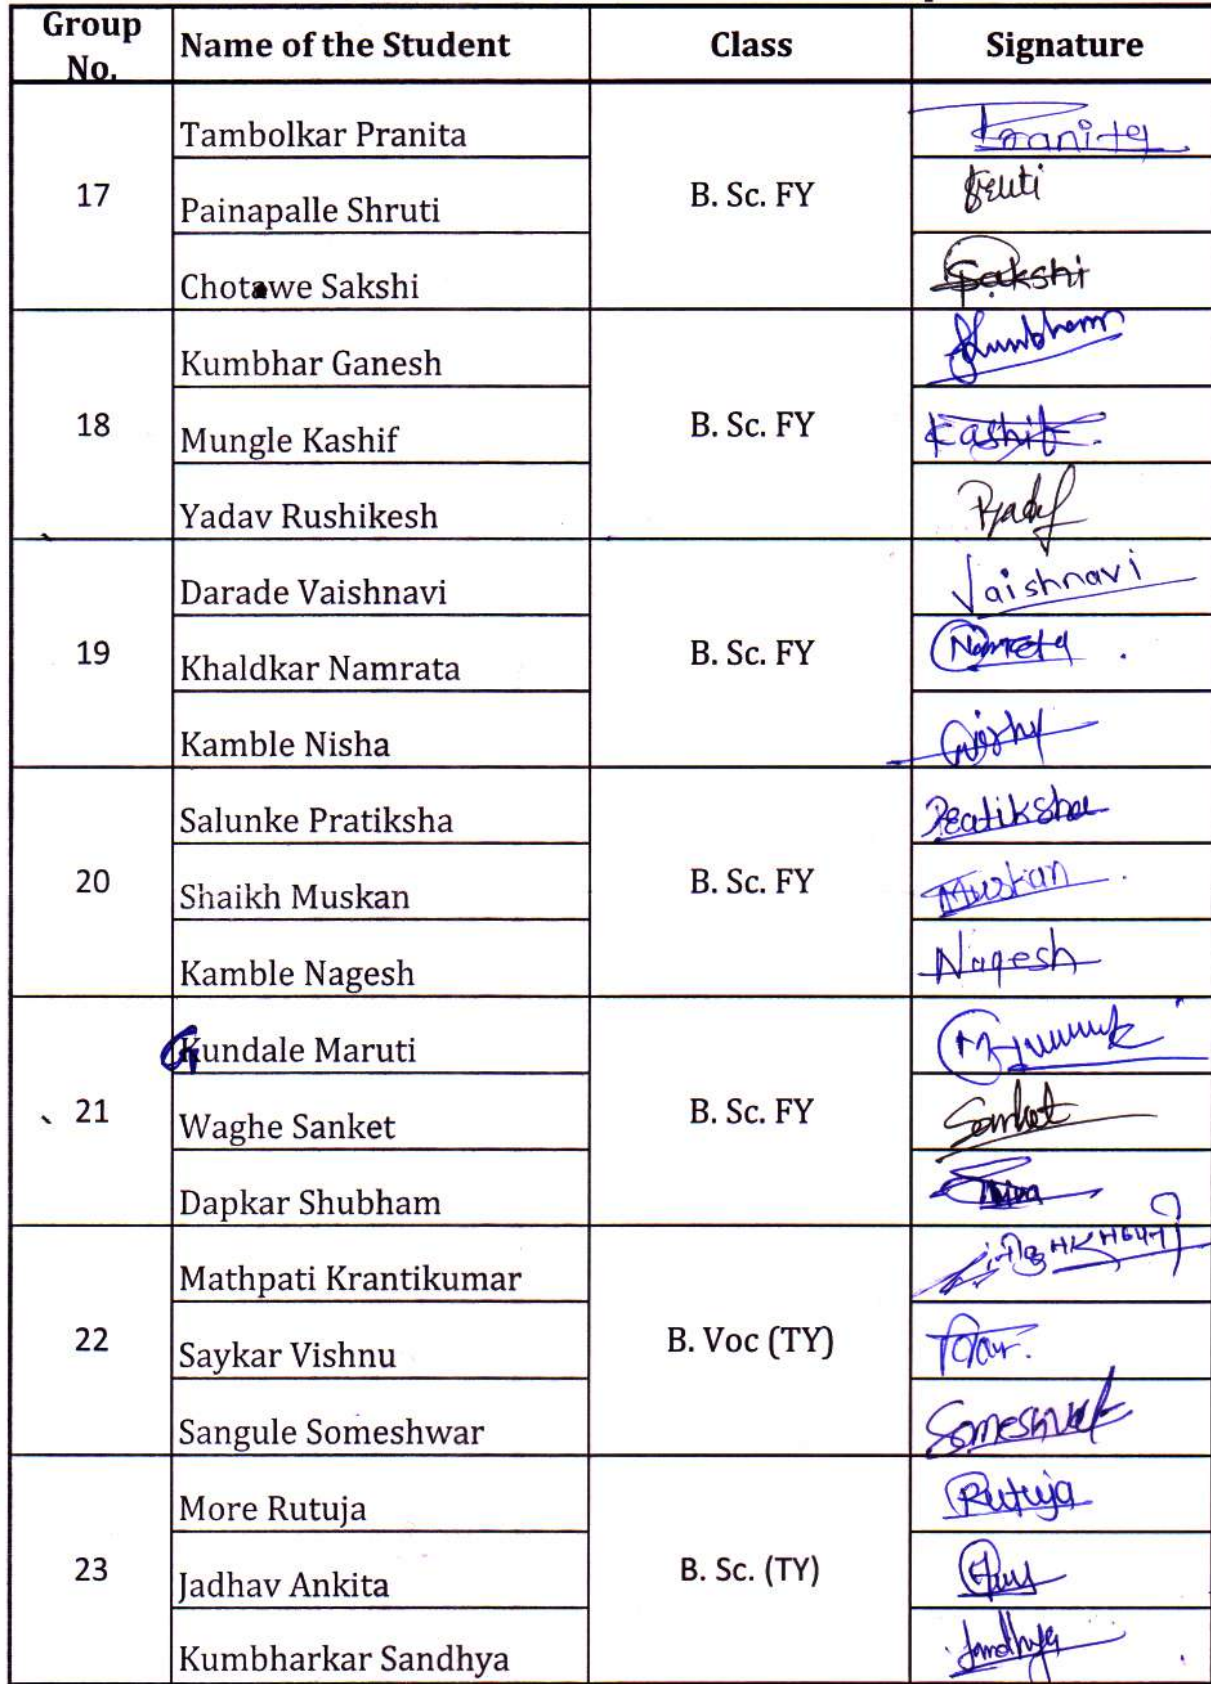 Group No. Name of the Student Class Signature
17 B. Sc. FY
Tambolkar Pranita Pranita
Painapalle Shruti Shruti
Chotawe Sakshi Sakshi
18 B. Sc. FY
Kumbhar Ganesh
Mungle Kashif Kashif
Yadav Rushikesh
19 B. Sc. FY
Darade Vaishnavi Vaishnavi
Khaldkar Namrata Namrata
Kamble Nisha
20 B. Sc. FY
Salunke Pratiksha Pratiksha
Shaikh Muskan Muskan
Kamble Nagesh Nagesh
21 B. Sc. FY
Gundale Maruti
Waghe Sanket Sanket
Dapkar Shubham
22 B. Voc (TY)
Mathpati Krantikumar
Saykar Vishnu
Sangule Someshwar Someshwar
23 B. Sc. (TY)
More Rutuja Rutuja
Jadhav Ankita
Kumbharkar Sandhya Sandhya